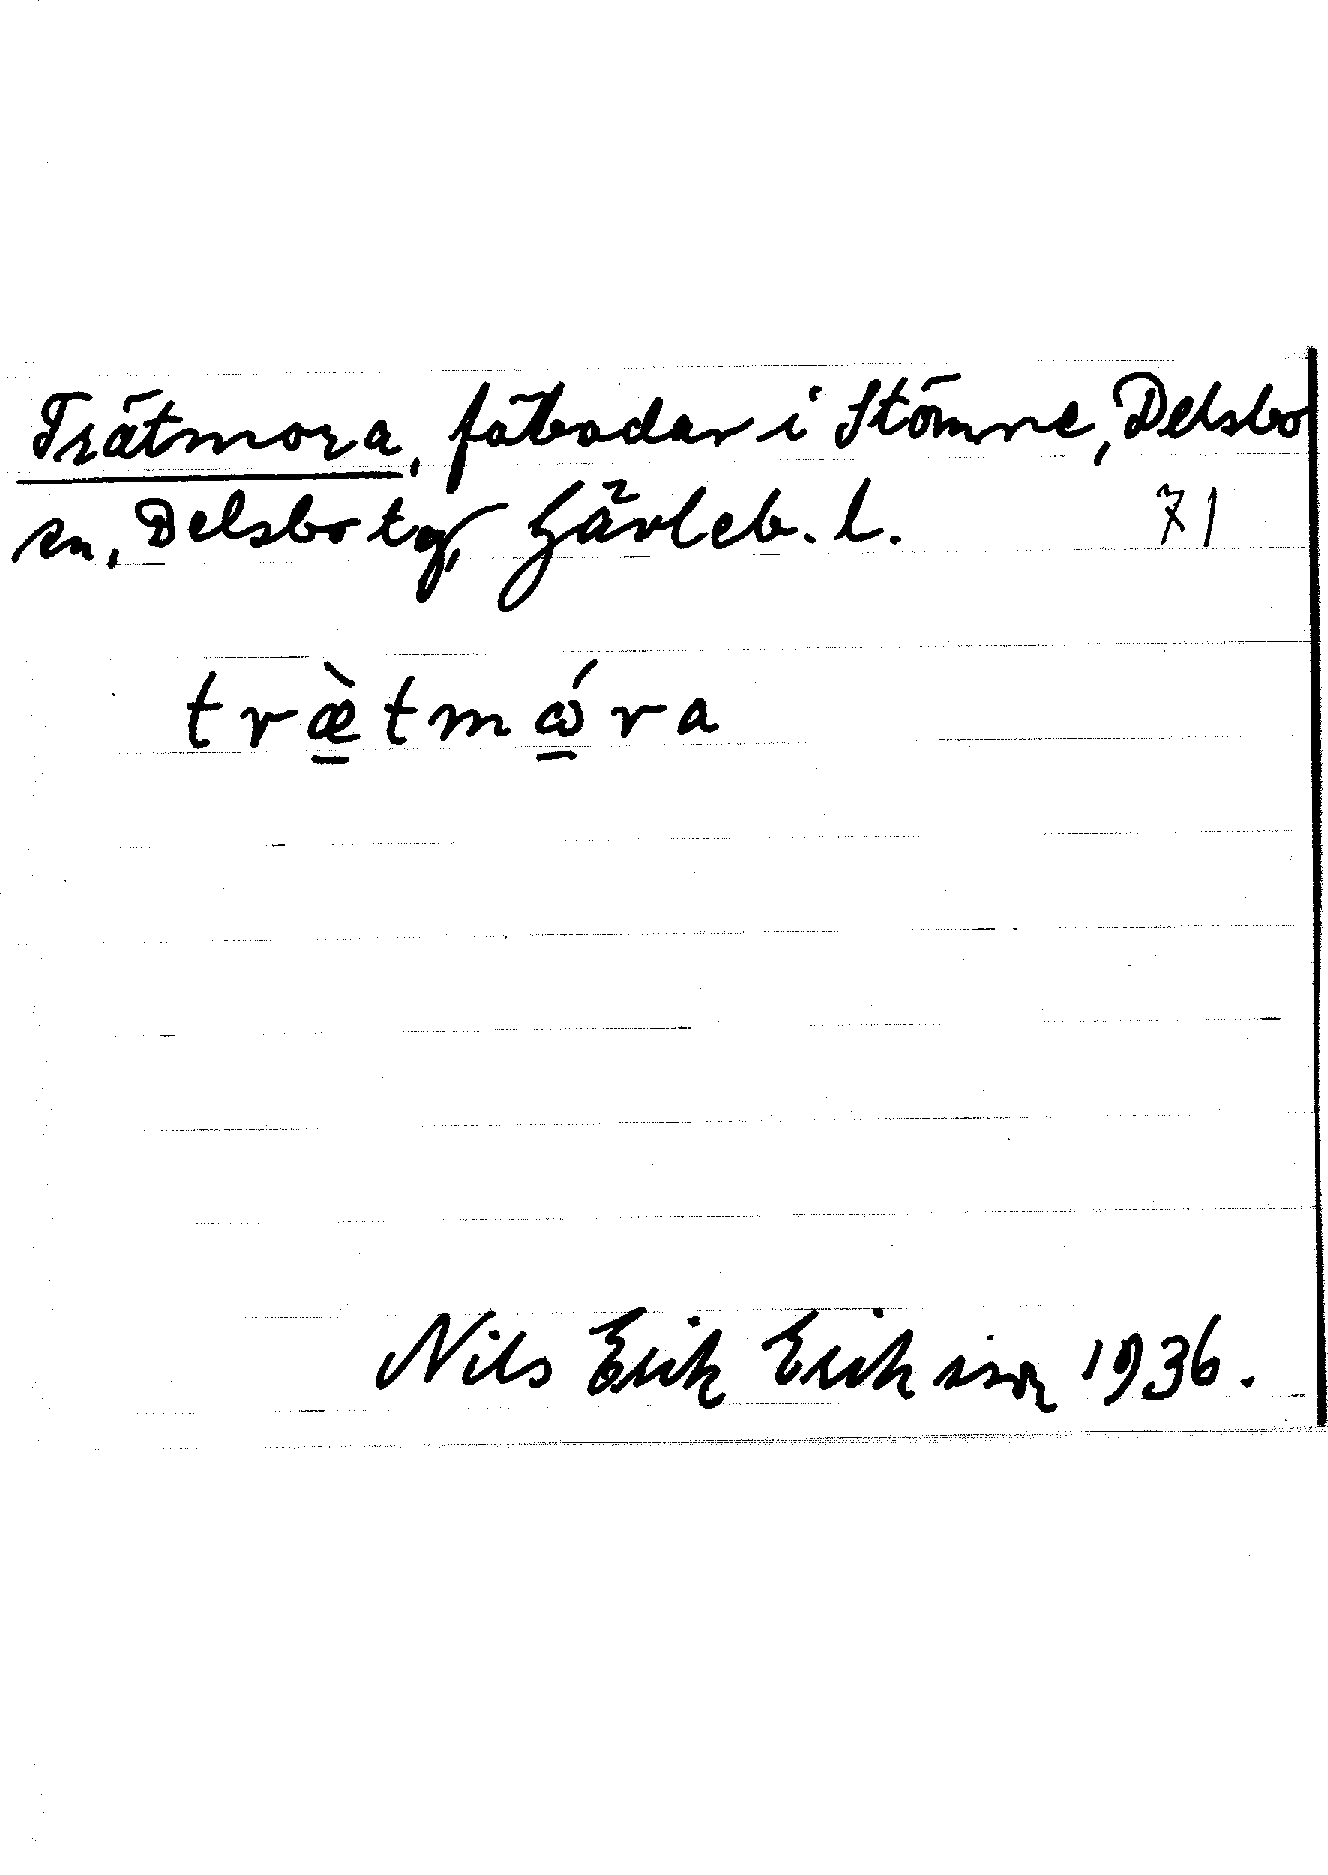 Trätmora, fäbodar i Stömne, Delsbo
sn, Delsbo tg, Gävleb. l. 71
træ̱̀tmɷ̱́ra
Nils Erik Eriksson 1936.